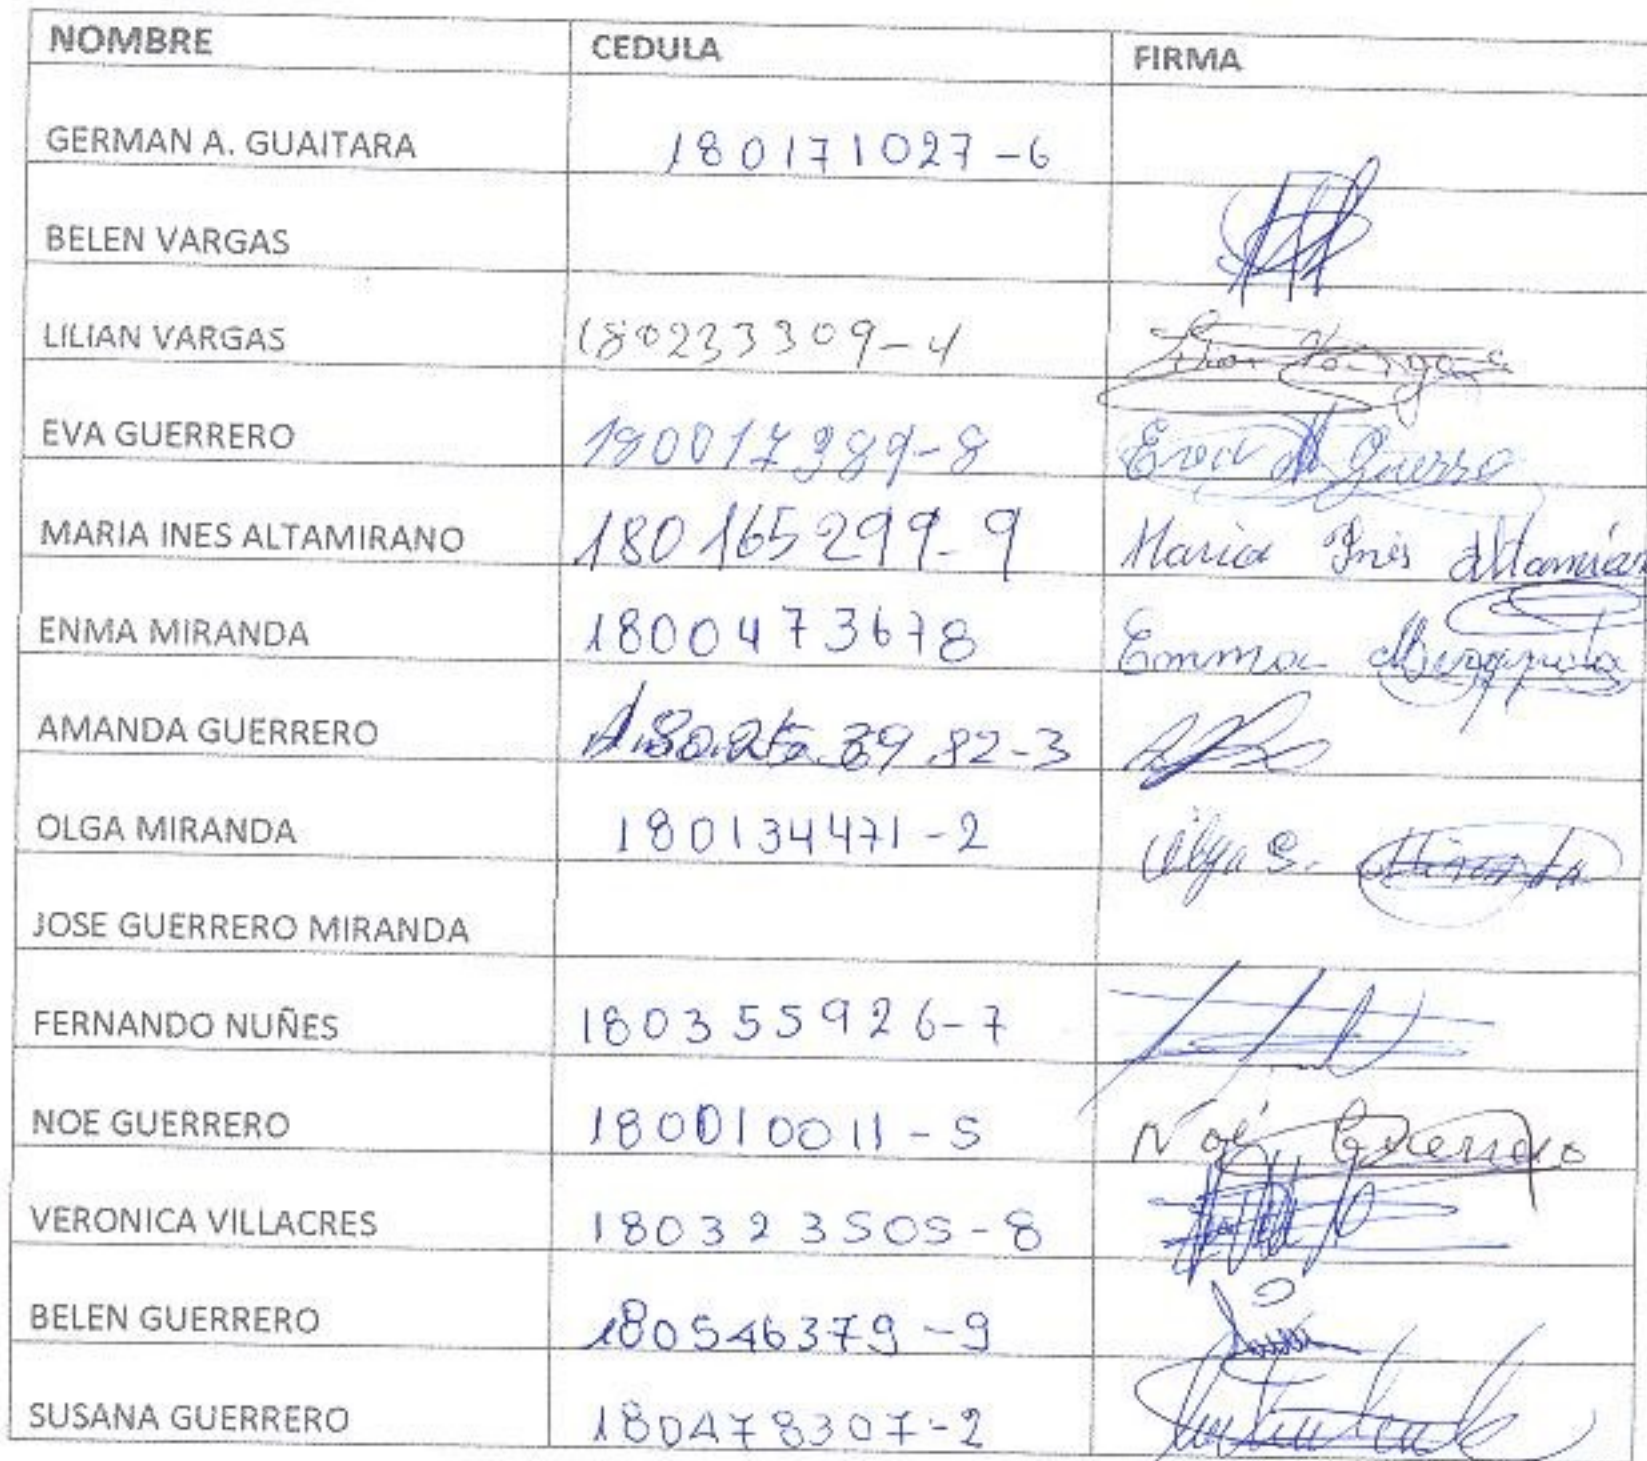 NOMBRE CEDULA FIRMA
GERMAN A. GUAITARA 180171027-6
BELEN VARGAS
LILIAN VARGAS 180233309-4
EVA GUERRERO 180017389-8 Eva Guerro
MARIA INES ALTAMIRANO 180165299-9 Maria Inés
ENMA MIRANDA 1800473678 Emma
AMANDA GUERRERO
OLGA MIRANDA 180134471-2 Olga S. Miranda
JOSE GUERRERO MIRANDA
FERNANDO NUÑES 180355926-7
NOE GUERRERO 180010011-5 Noé Guerrero
VERONICA VILLACRES 180323505-8
BELEN GUERRERO 180546379-9
SUSANA GUERRERO 180478307-2